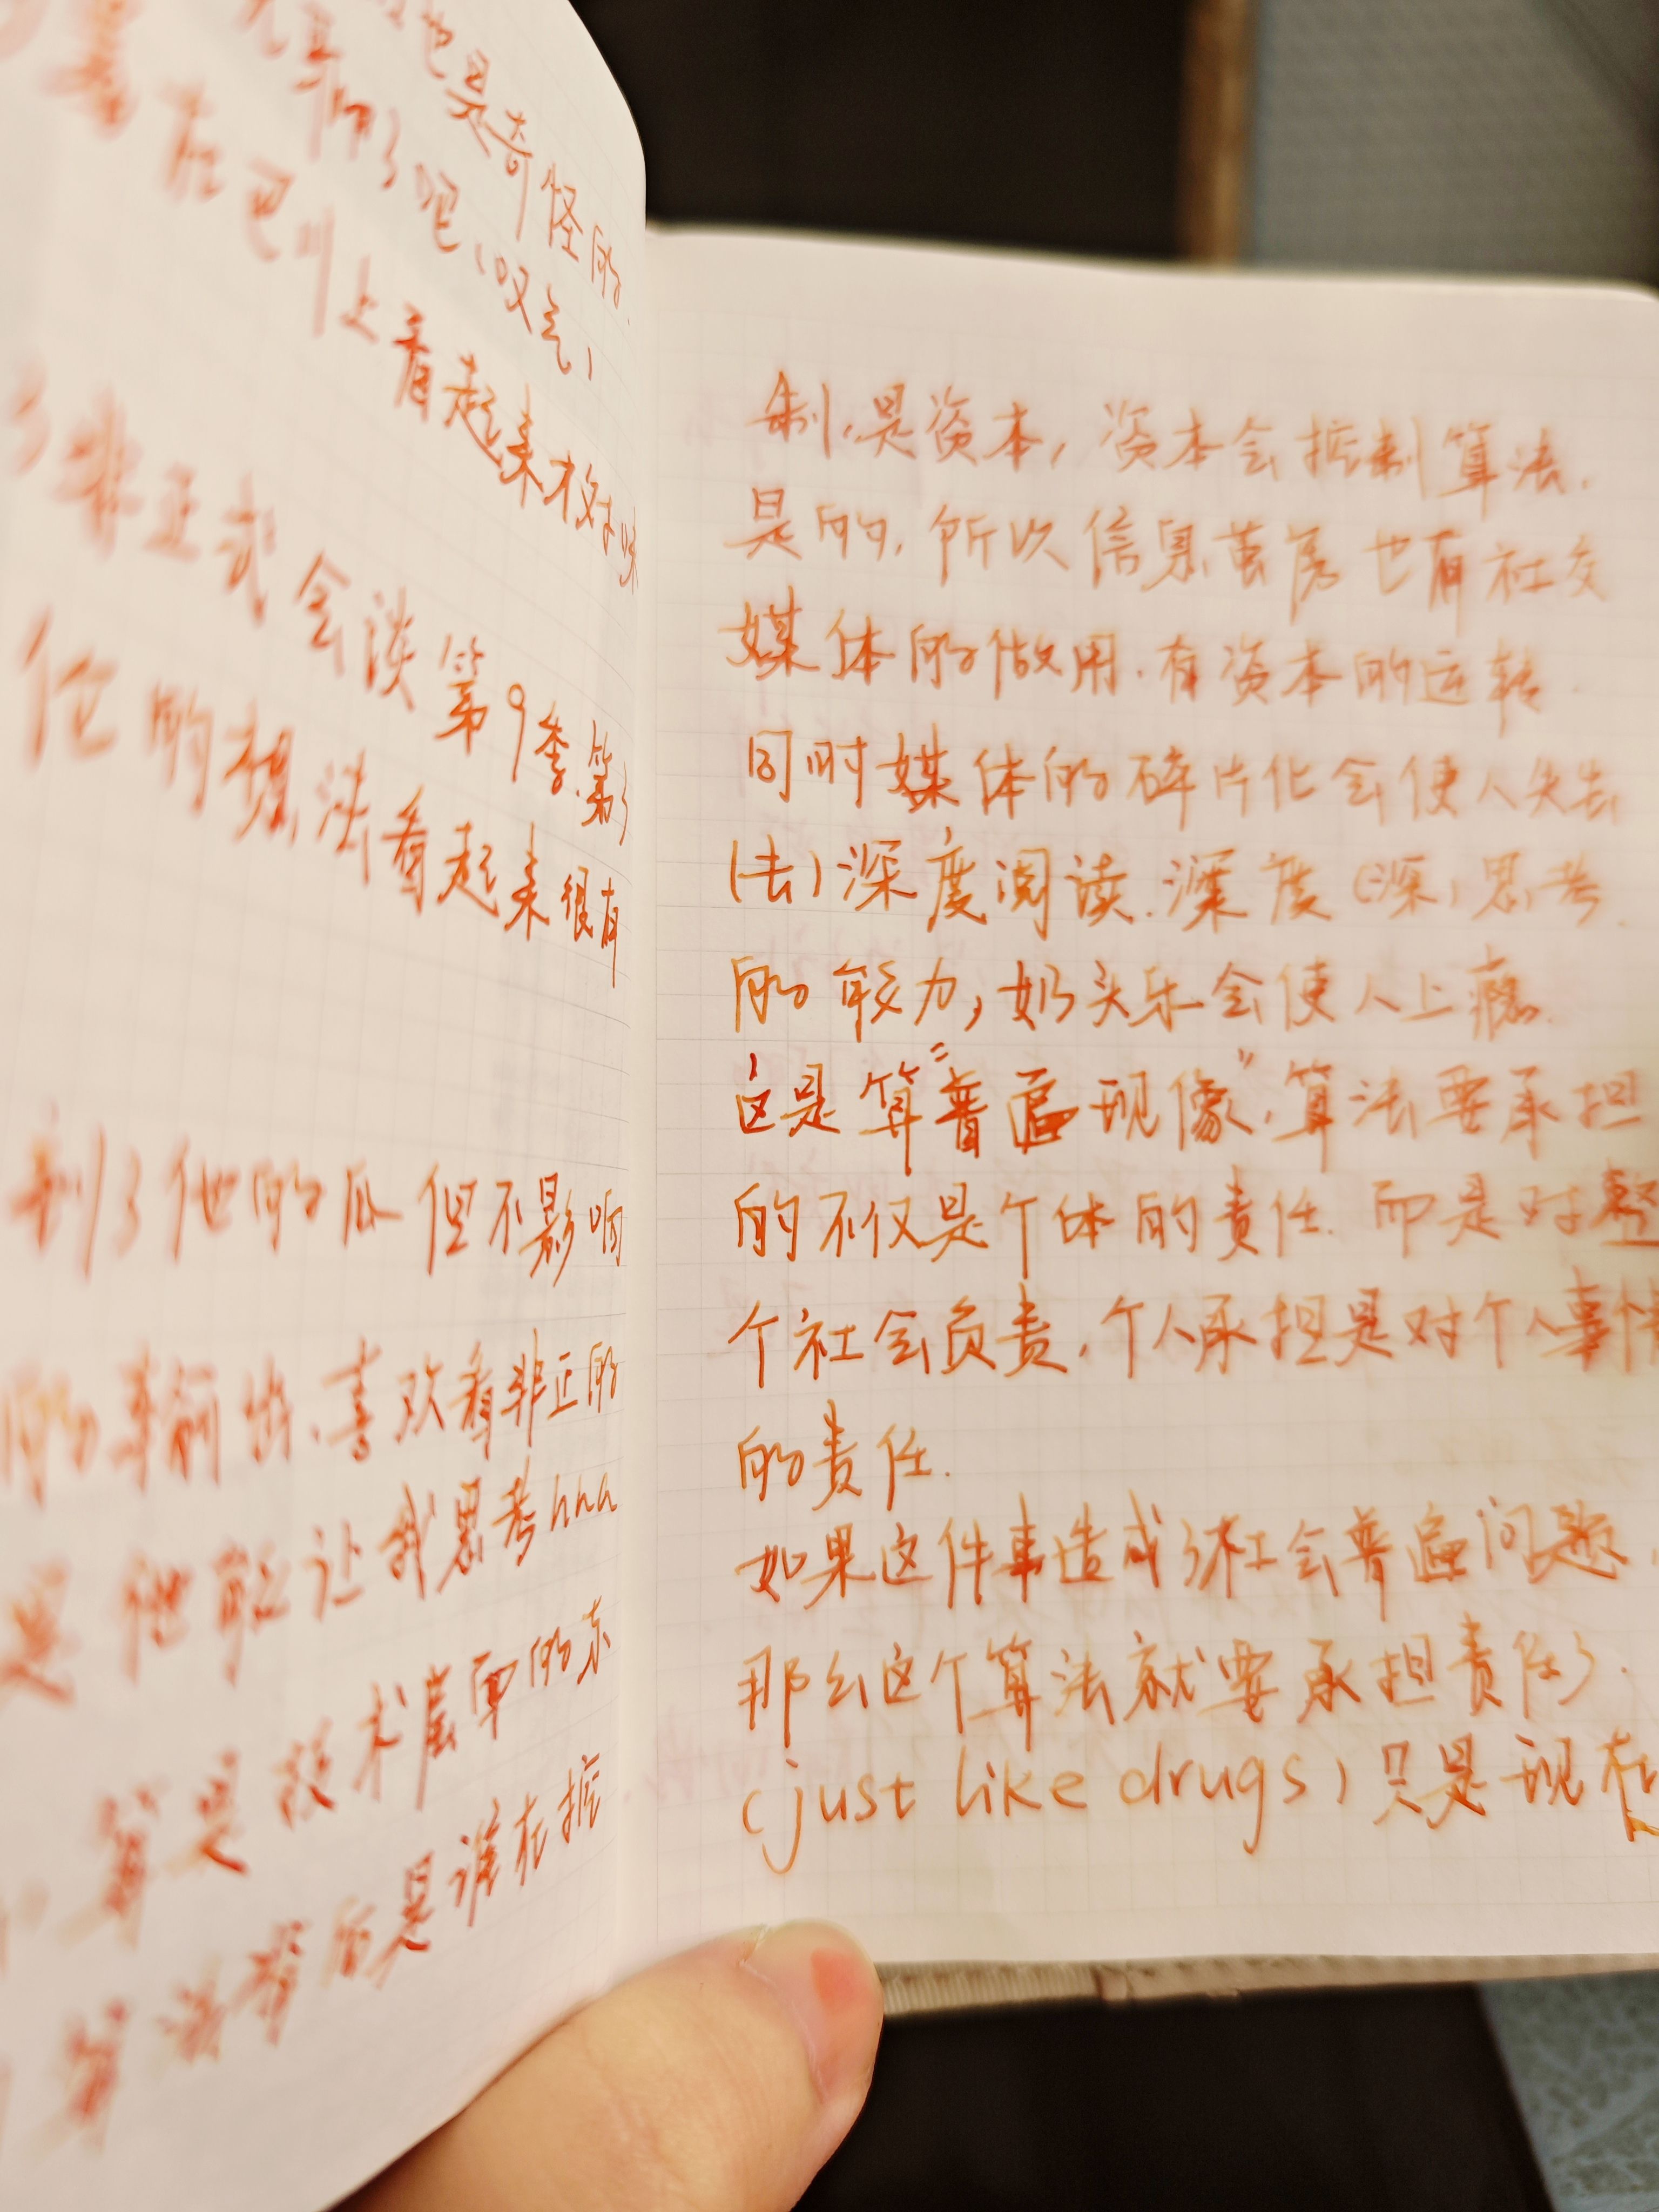 也是奇怪的.
了吧(叹气)
在巴川上看起来核对味
了非正式会谈第9季.第3
伦的想法看起来很有
到了他的瓜但不影响
的事前出.喜欢看非正的
是他能让我思考hhh
算是技术层面的东
算法背后是谁在控
制,是资本,资本会控制算法.
是的,所以信息茧房也有社交
媒体的做用.有资本的运转.
同时媒体的碎片化会使人失去
(去)深度阅读.深度(深)思考.
的能力,奶头乐会使人上瘾.
这是算"普遍现像",算法要承担
的不仅是个体的责任.而是对整
个社会负责,个人承担是对个人事情
的责任.
如果这件事造成了社会普遍问题,
那么这个算法就要承担责任了.
(just like drugs)只是现在